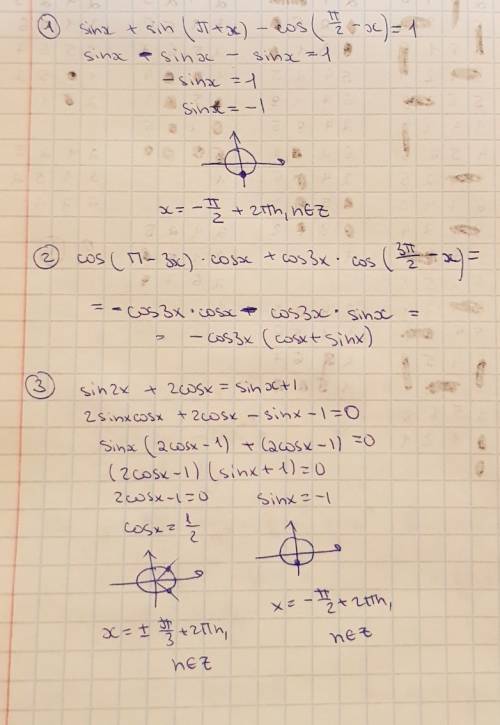 ① sinx + sin (π+x) - cos (π/2 - x) = 1
sinx - sinx - sinx = 1
- sinx = 1
sinx = -1
x = - π/2 + 2πn, n∈Z
② cos (π - 3x) · cosx + cos3x · cos (3π/2 - x) =
= - cos3x · cosx - cos3x · sinx =
= - cos3x (cosx + sinx)
③ sin2x + 2cosx = sinx + 1
2sinxcosx + 2cosx - sinx - 1 = 0
sinx (2cosx - 1) + (2cosx - 1) = 0
(2cosx - 1) (sinx + 1) = 0
2cosx - 1 = 0 sinx = -1
cosx = 1/2
x = ± π/3 + 2πn, x = - π/2 + 2πn,
n∈Z n∈Z